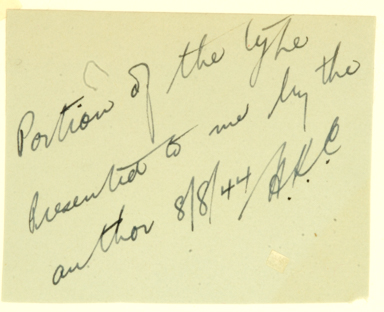 Portion of the type
Presented to me by the
author 8/8/44 H.K.C